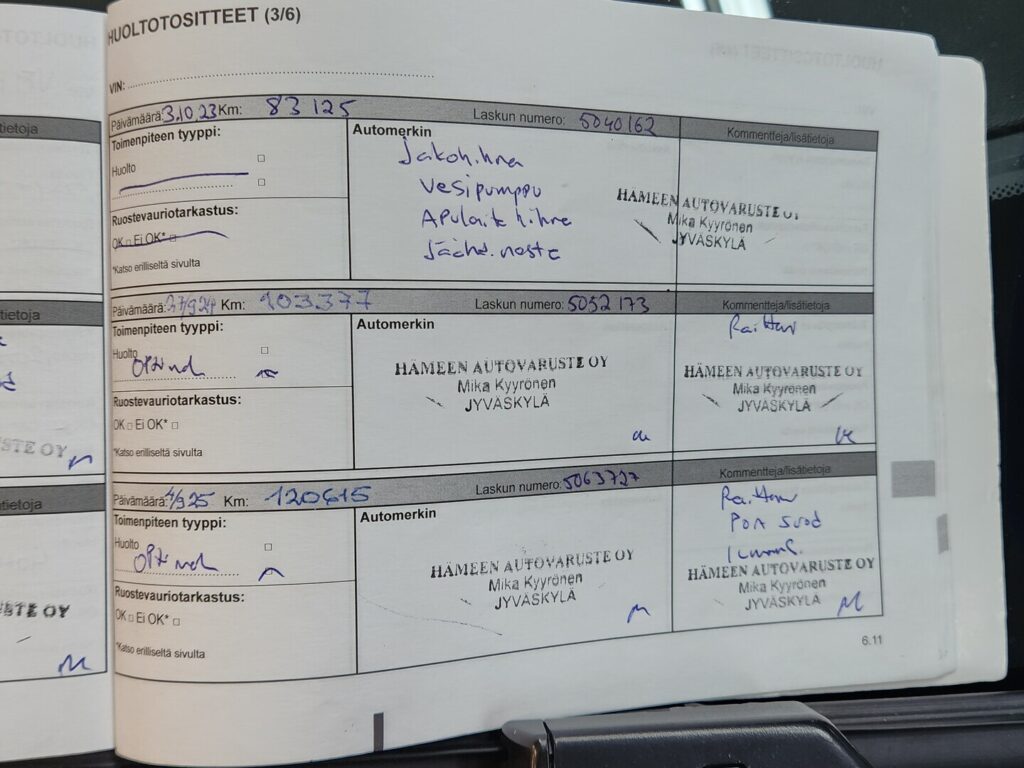 HUOLTOTOSITTEET (3/6)
VIN:
Päivämäärä: 3.10.23 Km: 83 125 Laskun numero: 5040162 Kommentteja/lisätietoja
Toimenpiteen tyyppi:
Huolto
Ruostevauriotarkastus:
OK Ei OK*
*Katso erilliseltä sivulta
Automerkin
Jakohihna
Vesipumppu
Apulaitehihna
Jäähd.neste
HÄMEEN AUTOVARUSTE OY
Mika Kyyrönen
JYVÄSKYLÄ
Päivämäärä: 27/9 24 Km: 103.377 Laskun numero: 5052 173 Kommentteja/lisätietoja
Toimenpiteen tyyppi:
Huolto
Ruostevauriotarkastus:
OK Ei OK*
*Katso erilliseltä sivulta
Automerkin
HÄMEEN AUTOVARUSTE OY
Mika Kyyrönen
JYVÄSKYLÄ
HÄMEEN AUTOVARUSTE OY
Mika Kyyrönen
JYVÄSKYLÄ
Päivämäärä: 4/9 25 Km: 120615 Laskun numero: 5063727 Kommentteja/lisätietoja
Toimenpiteen tyyppi:
Huolto
Ruostevauriotarkastus:
OK Ei OK*
*Katso erilliseltä sivulta
Automerkin
HÄMEEN AUTOVARUSTE OY
Mika Kyyrönen
JYVÄSKYLÄ
HÄMEEN AUTOVARUSTE OY
Mika Kyyrönen
JYVÄSKYLÄ
6.11